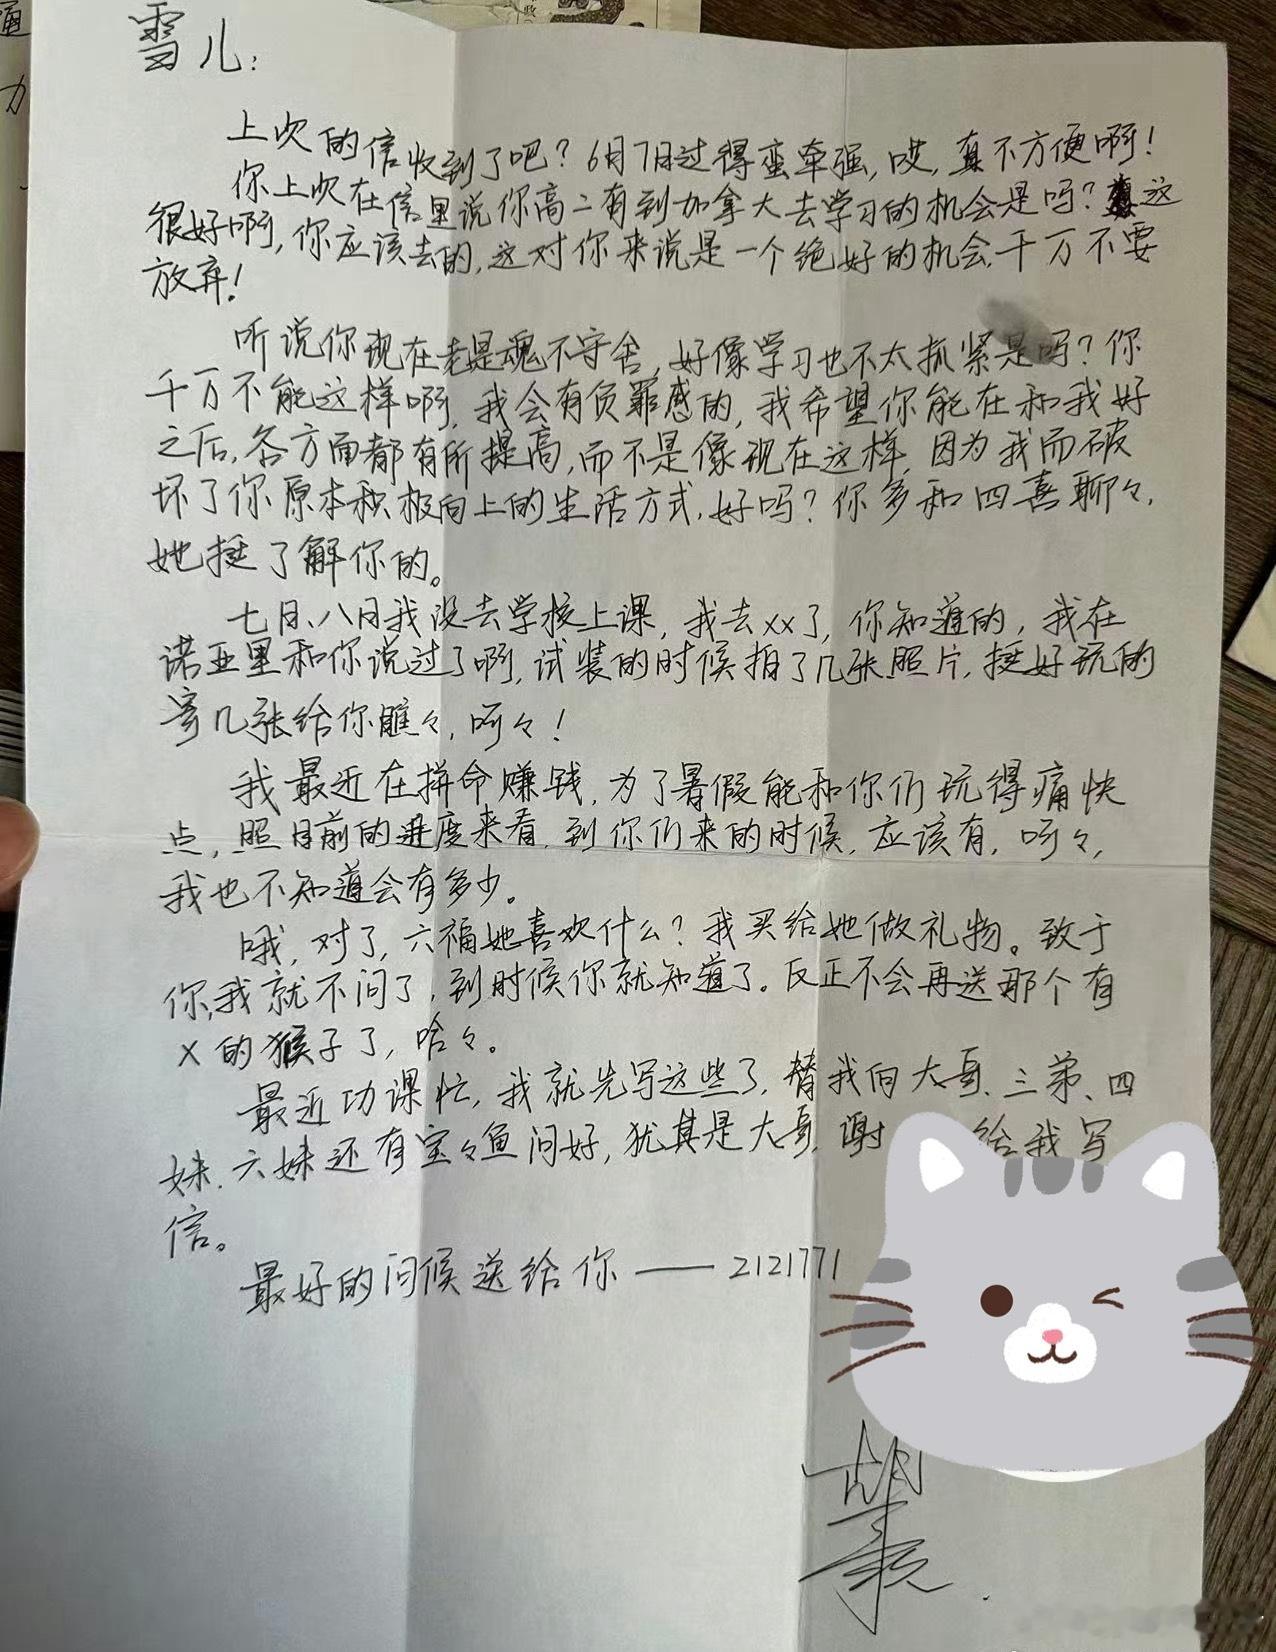 雪儿:
上次的信收到了吧？6月7日过得蛮牵强，哎，真不方便啊！
你上次在信里说你高二有到加拿大去学习的机会是吗？这
很好啊，你应该去的，这对你来说是一个绝好的机会，千万不要
放弃！
听说你现在老是魂不守舍，好像学习也不太抓紧是吗？你
千万不能这样啊，我会有负罪感的，我希望你能在和我好
之后，各方面都有所提高，而不是像现在这样，因为我而破
坏了你原本积极向上的生活方式，好吗？你多和四喜聊々，
她挺了解你的。
七月、八月我没去学校上课，我去xx了，你知道的，我在
诺亚里和你说过了啊，试装的时候拍了几张照片，挺好玩的
寄几张给你瞧々，呵々！
我最近在拼命赚钱，为了暑假能和你们玩得痛快
点，照目前的进度来看，到你们来的时候，应该有，呵々，
我也不知道会有多少。
哦，对了，六福她喜欢什么？我买给她做礼物。致于
你，我就不问了，到时候你就知道了。反正不会再送那个有
X的猴子了，哈々。
最近功课忙，我就先写这些了，替我向大哥、三弟、四
妹、六妹还有宝々鱼问好，犹其是大哥，谢 给我写
信。
最好的问候送给你——2121771
胡